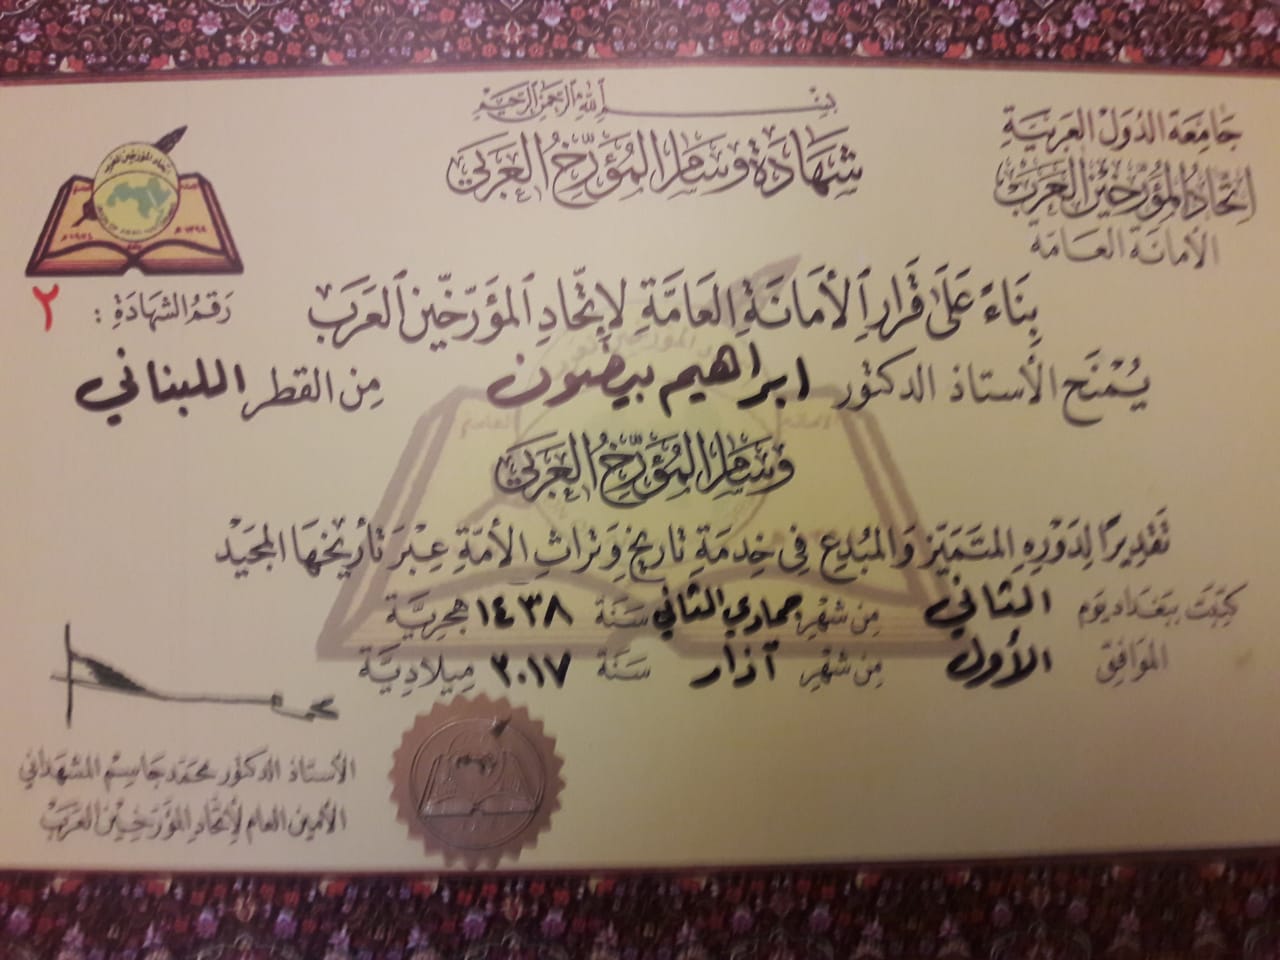 بسم الله الرحمن الرحيم
جَامِعَة الدُوَل العَرَبيَة
اتحَادُ المُؤرّخيْن العَرَبْ
الأمانَة العَامَة
شهَادَة وسَام المُؤرّخ العَرَبي
رَقمُ الشهَادَةِ : ٢
بِنَاءً عَلىٰ قَرارِ الأمَانَةِ العَامَّةِ لإتّحَادِ المؤَرّخيْن العَرَب
يُمْنَح الأستاذ الدكتور ابراهيم بيضون مِن القطر اللبناني
وسَام المُؤرّخ العَرَبي
تَقدِيرًا لِدَوْرِهِ المتَمَيّز وَالمُبْدِع فِي خِدمَةِ تاريخ وَتراثِ الأمّةِ عِبْرَ تأريخهَا المجَيْد
كتِبَت ببَغدَاد يَوم الثاني مِن شهْرِ جمادي الثاني سَنَة ١٤٣٨ هجريَّة
الموَافِق الأول مِن شهْرِ آذار سَنَة ٢٠١٧ مِيلاديَّة
الأستاذ الدكتور محمَد جَاسِم المشهَدَاني
الأمين العام لإتّحَاد المؤرّخيْن العَرَبْ